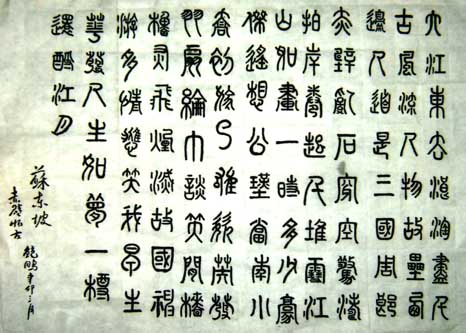 大江東去浪淘盡千
古風流人物故壘西
邊人道是三國周郎
赤壁亂石穿空驚濤
拍岸卷起千堆雪江
山如畫一時多少豪
傑遙想公瑾當年小
喬初嫁了雄姿英發
羽扇綸巾談笑間檣
櫓灰飛煙滅故國神
遊多情應笑我早生
華發人生如夢一樽
還酹江月
蘇東坡
赤壁怀古
鵬辛卯三月